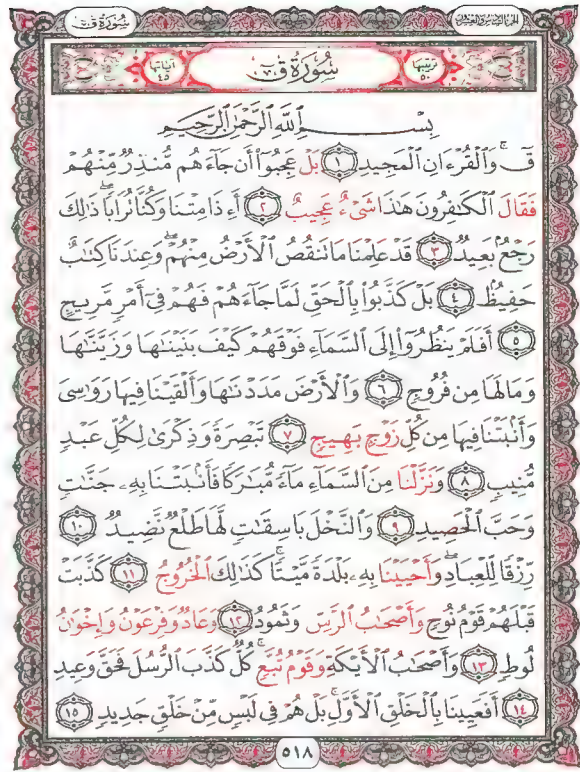 سُورَةُ قٓ
الجزء السادس والعشرون
ترتيبها ٥٠
سُورَةُ قٓ
آياتها ٤٥
بِسۡمِ ٱللَّهِ ٱلرَّحۡمَٰنِ ٱلرَّحِيمِ
قٓۚ وَٱلۡقُرۡءَانِ ٱلۡمَجِيدِ ١ بَلۡ عَجِبُوٓاْ أَن جَآءَهُم مُّنذِرٞ مِّنۡهُمۡ
فَقَالَ ٱلۡكَٰفِرُونَ هَٰذَا شَيۡءٌ عَجِيبٌ ٢ أَءِذَا مِتۡنَا وَكُنَّا تُرَابٗاۖ ذَٰلِكَ
رَجۡعُۢ بَعِيدٞ ٣ قَدۡ عَلِمۡنَا مَا تَنقُصُ ٱلۡأَرۡضُ مِنۡهُمۡۖ وَعِندَنَا كِتَٰبٌ
حَفِيظُۢ ٤ بَلۡ كَذَّبُواْ بِٱلۡحَقِّ لَمَّا جَآءَهُمۡ فَهُمۡ فِيٓ أَمۡرٖ مَّرِيجٍ
٥ أَفَلَمۡ يَنظُرُوٓاْ إِلَى ٱلسَّمَآءِ فَوۡقَهُمۡ كَيۡفَ بَنَيۡنَٰهَا وَزَيَّنَّٰهَا
وَمَا لَهَا مِن فُرُوجٖ ٦ وَٱلۡأَرۡضَ مَدَدۡنَٰهَا وَأَلۡقَيۡنَا فِيهَا رَوَٰسِيَ
وَأَنۢبَتۡنَا فِيهَا مِن كُلِّ زَوۡجِۭ بَهِيجٖ ٧ تَبۡصِرَةٗ وَذِكۡرَىٰ لِكُلِّ عَبۡدٖ
مُّنِيبٖ ٨ وَنَزَّلۡنَا مِنَ ٱلسَّمَآءِ مَآءٗ مُّبَٰرَكٗا فَأَنۢبَتۡنَا بِهِۦ جَنَّٰتٖ
وَحَبَّ ٱلۡحَصِيدِ ٩ وَٱلنَّخۡلَ بَاسِقَٰتٖ لَّهَا طَلۡعٞ نَّضِيدٞ ١٠
رِّزۡقٗا لِّلۡعِبَادِۖ وَأَحۡيَيۡنَا بِهِۦ بَلۡدَةٗ مَّيۡتٗاۚ كَذَٰلِكَ ٱلۡخُرُوجُ ١١ كَذَّبَتۡ
قَبۡلَهُمۡ قَوۡمُ نُوحٖ وَأَصۡحَٰبُ ٱلرَّسِّ وَثَمُودُ ١٢ وَعَادٞ وَفِرۡعَوۡنُ وَإِخۡوَٰنُ
لُوطٖ ١٣ وَأَصۡحَٰبُ ٱلۡأَيۡكَةِ وَقَوۡمُ تُبَّعٖۚ كُلّٞ كَذَّبَ ٱلرُّسُلَ فَحَقَّ وَعِيدِ
١٤ أَفَعَيِينَا بِٱلۡخَلۡقِ ٱلۡأَوَّلِۚ بَلۡ هُمۡ فِي لَبۡسٖ مِّنۡ خَلۡقٖ جَدِيدٖ ١٥
٥١٨